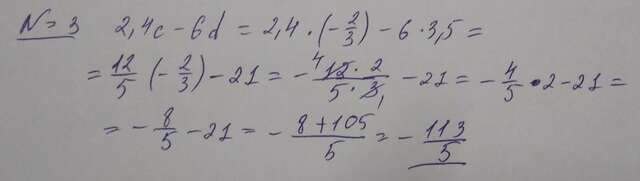 № 3 2,4c - 6d = 2,4 · (-2/3) - 6 · 3,5 =
= 12/5 (-2/3) - 21 = - 4 12 · 2 / 5 · 3 1 - 21 = - 4/5 · 2 - 21 =
= - 8/5 - 21 = - (8 + 105)/5 = - 113/5